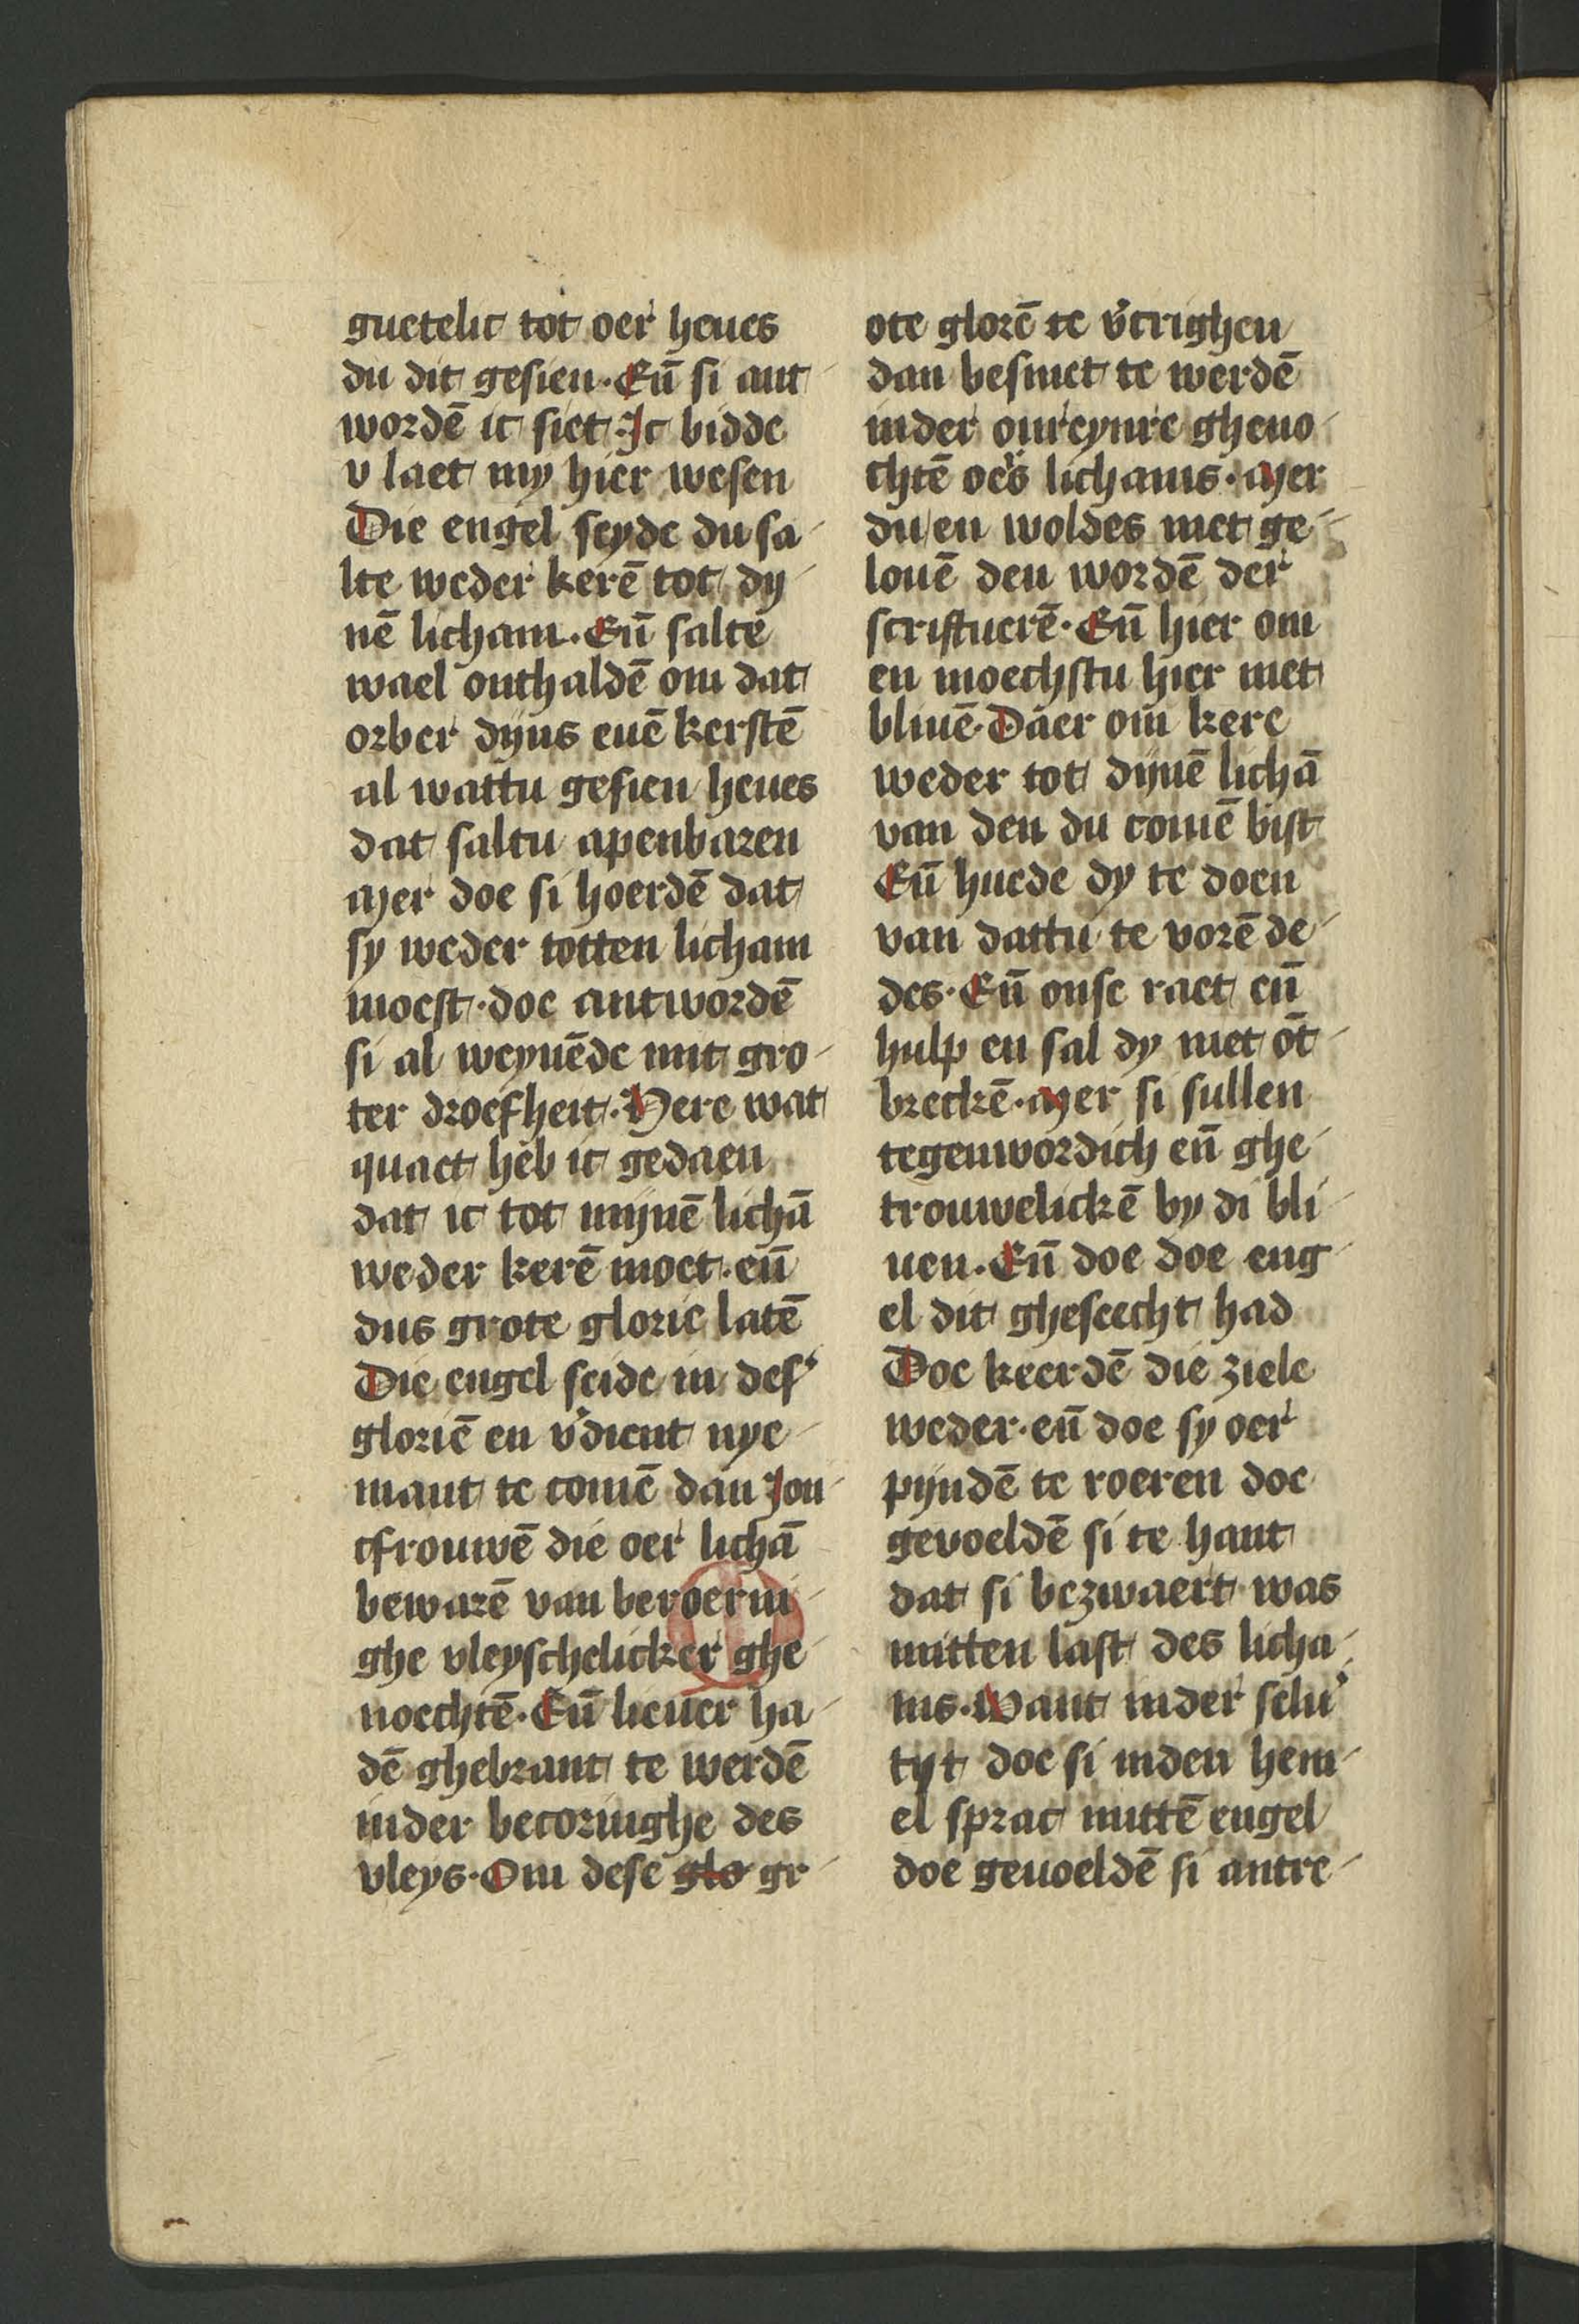 guetelic tot oer heues
du dit gesien. Eñ si ant
wordē ic siet. Ic bidde
v laet my hier wesen
Die engel seyde du sa
lte weder kerē tot dy
nē licham. Eñ salte
wael onthaldē om dat
orber dijns euē kerstē
al wattu gesien heues
dat saltu apenbaren
Mer doe si hoerdē dat
sy weder totten licham
moest. doe antwordē
si al weynēde mit gro
ter droefheit. Here wat
quaet heb ic gedaen
dat ic tot mijnē lichā
weder kerē moet. eñ
dus grote glorie latē
Die engel seide in des'
gloriē en v'dient nye
mant te comē dan Jon
cfrouwē die oer lichā
bewarē van beroerin
ghe vleyschelicker ghe
noechtē. Eñ lieuer ha
dē ghebrant te werdē
inder becoringhe des
vleys. Om dese glo gr
ote glorē te v'crighen
dan besmet te werdē
inder onreynre gheno
chtē oers lichams. Mer
du en woldes niet ge
louē den wordē der
scriftuerē. Eñ hier om
en moechstu hier niet
bliuē. Daer om kere
weder tot dijnē lichā
van den du comē bist
Eñ huede dy te doen
van dattu te vorē de
des. Eñ onse raet eñ
hulp en sal dy niet ōt
breckē. Mer si sullen
tegenwordich eñ ghe
trouwelickē by di bli
uen. Eñ doe doe eng
el dit gheseecht had
Doe keerdē die ziele
weder. eñ doe sy oer
pijndē te roeren doe
gevoeldē si te hant
dat si bezwaert was
mitten last des licha
ms. Want inder selu'
tyt doe si inden hem
el sprac mittē engel
doe geuoeldē si antre